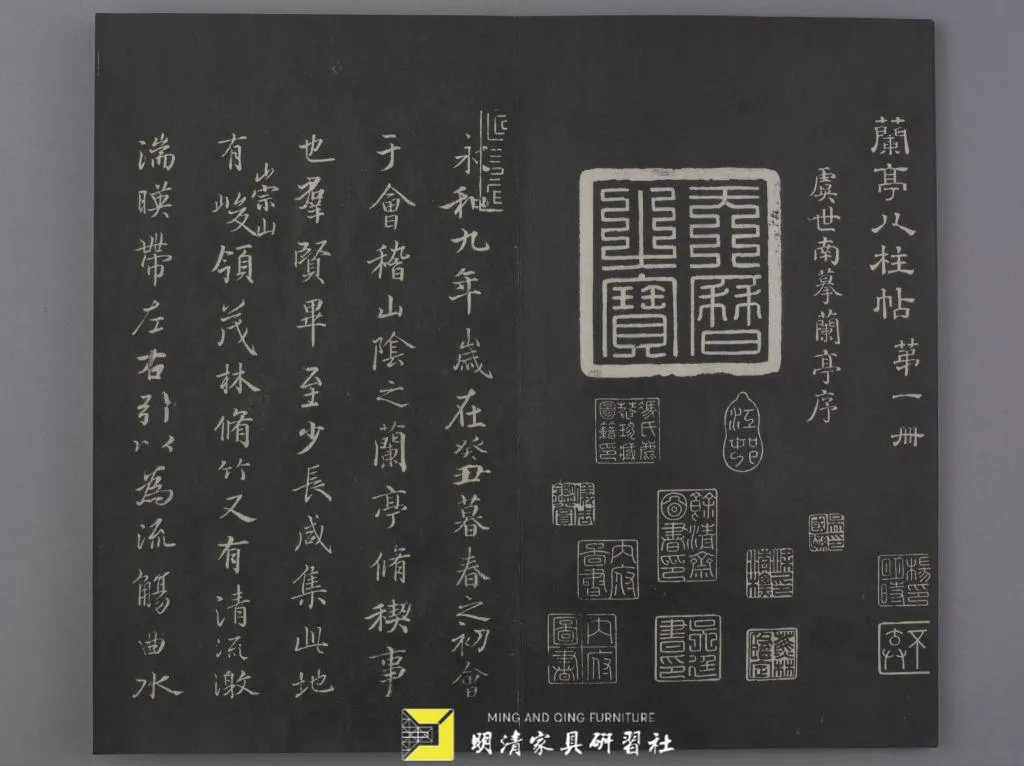 蘭亭八柱帖 第一冊
虞世南摹蘭亭序
天曆之寶
內府圖書
內府圖書
餘清齋圖書印
永和九年歲在癸丑暮春之初會
于會稽山陰之蘭亭脩稧事
也羣賢畢至少長咸集此地
有崇山峻領茂林脩竹又有清流激
湍暎帶左右引以為流觴曲水
MING AND QING FURNITURE
明清家具研習社